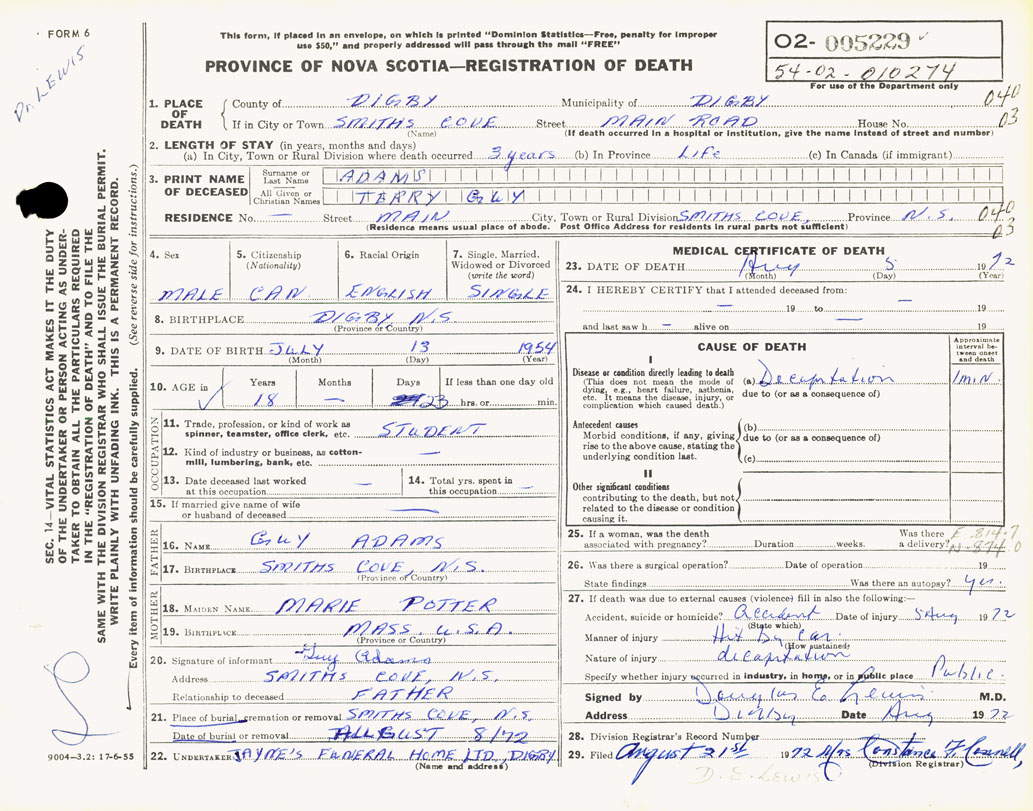 FORM 6
Dr. LEWIS
This form, if placed in an envelope, on which is printed "Dominion Statistics—Free, penalty for improper
use $50," and properly addressed will pass through the mail "FREE"
PROVINCE OF NOVA SCOTIA—REGISTRATION OF DEATH
02- 005229
54-02-010274
For use of the Department only
1. PLACE OF DEATH County of DIGBY Municipality of DIGBY 040
If in City or Town SMITHS COVE Street MAIN ROAD House No. 03
(Name) (If death occurred in a hospital or institution, give the name instead of street and number)
2. LENGTH OF STAY (in years, months and days)
(a) In City, Town or Rural Division where death occurred 3 years (b) In Province Life (c) In Canada (if immigrant)
3. PRINT NAME OF DECEASED Surname or Last Name ADAMS
All Given or Christian Names TERRY GUY
RESIDENCE No. — Street MAIN City, Town or Rural Division SMITHS COVE, Province N.S. 040
(Residence means usual place of abode. Post Office Address for residents in rural parts not sufficient) 03
4. Sex MALE
5. Citizenship (Nationality) CAN.
6. Racial Origin ENGLISH
7. Single, Married, Widowed or Divorced (write the word) SINGLE
8. BIRTHPLACE DIGBY N.S.
(Province or Country)
9. DATE OF BIRTH JULY 13 1954
(Month) (Day) (Year)
10. AGE in Years Months Days If less than one day old
18 — 23 hrs. or min.
OCCUPATION
11. Trade, profession, or kind of work as spinner, teamster, office clerk, etc. STUDENT
12. Kind of industry or business, as cotton-mill, lumbering, bank, etc. —
13. Date deceased last worked at this occupation —
14. Total yrs. spent in this occupation —
15. If married give name of wife or husband of deceased —
FATHER
16. NAME GUY ADAMS
17. BIRTHPLACE SMITHS COVE, N.S.
(Province or Country)
MOTHER
18. MAIDEN NAME MARIE POTTER
19. BIRTHPLACE MASS. U.S.A.
(Province or Country)
20. Signature of informant Guy Adams
Address SMITHS COVE, N.S.
Relationship to deceased FATHER
21. Place of burial, cremation or removal SMITHS COVE, N.S.
Date of burial or removal AUGUST 8/72
22. UNDERTAKER JAYNE'S FUNERAL HOME LTD, DIGBY
(Name and address)
MEDICAL CERTIFICATE OF DEATH
23. DATE OF DEATH Aug 5 1972
(Month) (Day) (Year)
24. I HEREBY CERTIFY that I attended deceased from:
— 19 to — 19
and last saw h — alive on 19
CAUSE OF DEATH
Approximate interval between onset and death
I
Disease or condition directly leading to death
(This does not mean the mode of dying, e.g., heart failure, asthenia, etc. It means the disease, injury, or complication which caused death.)
(a) Decapitation 1 MIN.
due to (or as a consequence of)
Antecedent causes
Morbid conditions, if any, giving rise to the above cause, stating the underlying condition last.
(b)
due to (or as a consequence of)
(c)
II
Other significant conditions
contributing to the death, but not related to the disease or condition causing it.
25. If a woman, was the death associated with pregnancy? Duration weeks. Was there a delivery?
E-814.7
N-874.0
26. Was there a surgical operation? Date of operation 19
State findings Was there an autopsy? Yes.
27. If death was due to external causes (violence) fill in also the following:—
Accident, suicide or homicide? Accident Date of injury 5 Aug 1972
(State which)
Manner of injury Hit by car.
(How sustained)
Nature of injury decapitation
Specify whether injury occurred in industry, in home, or in public place Public.
Signed by Douglas E. Lewis M.D.
Address Digby Date Aug 1972
28. Division Registrar's Record Number
29. Filed August 21st 1972 Mrs Constance F. Connell,
(Division Registrar)
D. E. LEWIS
SEC. 14—VITAL STATISTICS ACT MAKES IT THE DUTY
OF THE UNDERTAKER OR PERSON ACTING AS UNDER-
TAKER TO OBTAIN ALL THE PARTICULARS REQUIRED
IN THE "REGISTRATION OF DEATH" AND TO FILE THE
SAME WITH THE DIVISION REGISTRAR WHO SHALL ISSUE THE BURIAL PERMIT.
WRITE PLAINLY WITH UNFADING INK. THIS IS A PERMANENT RECORD.
Every item of information should be carefully supplied. (See reverse side for instructions.)
9004—3.2: 17-6-55